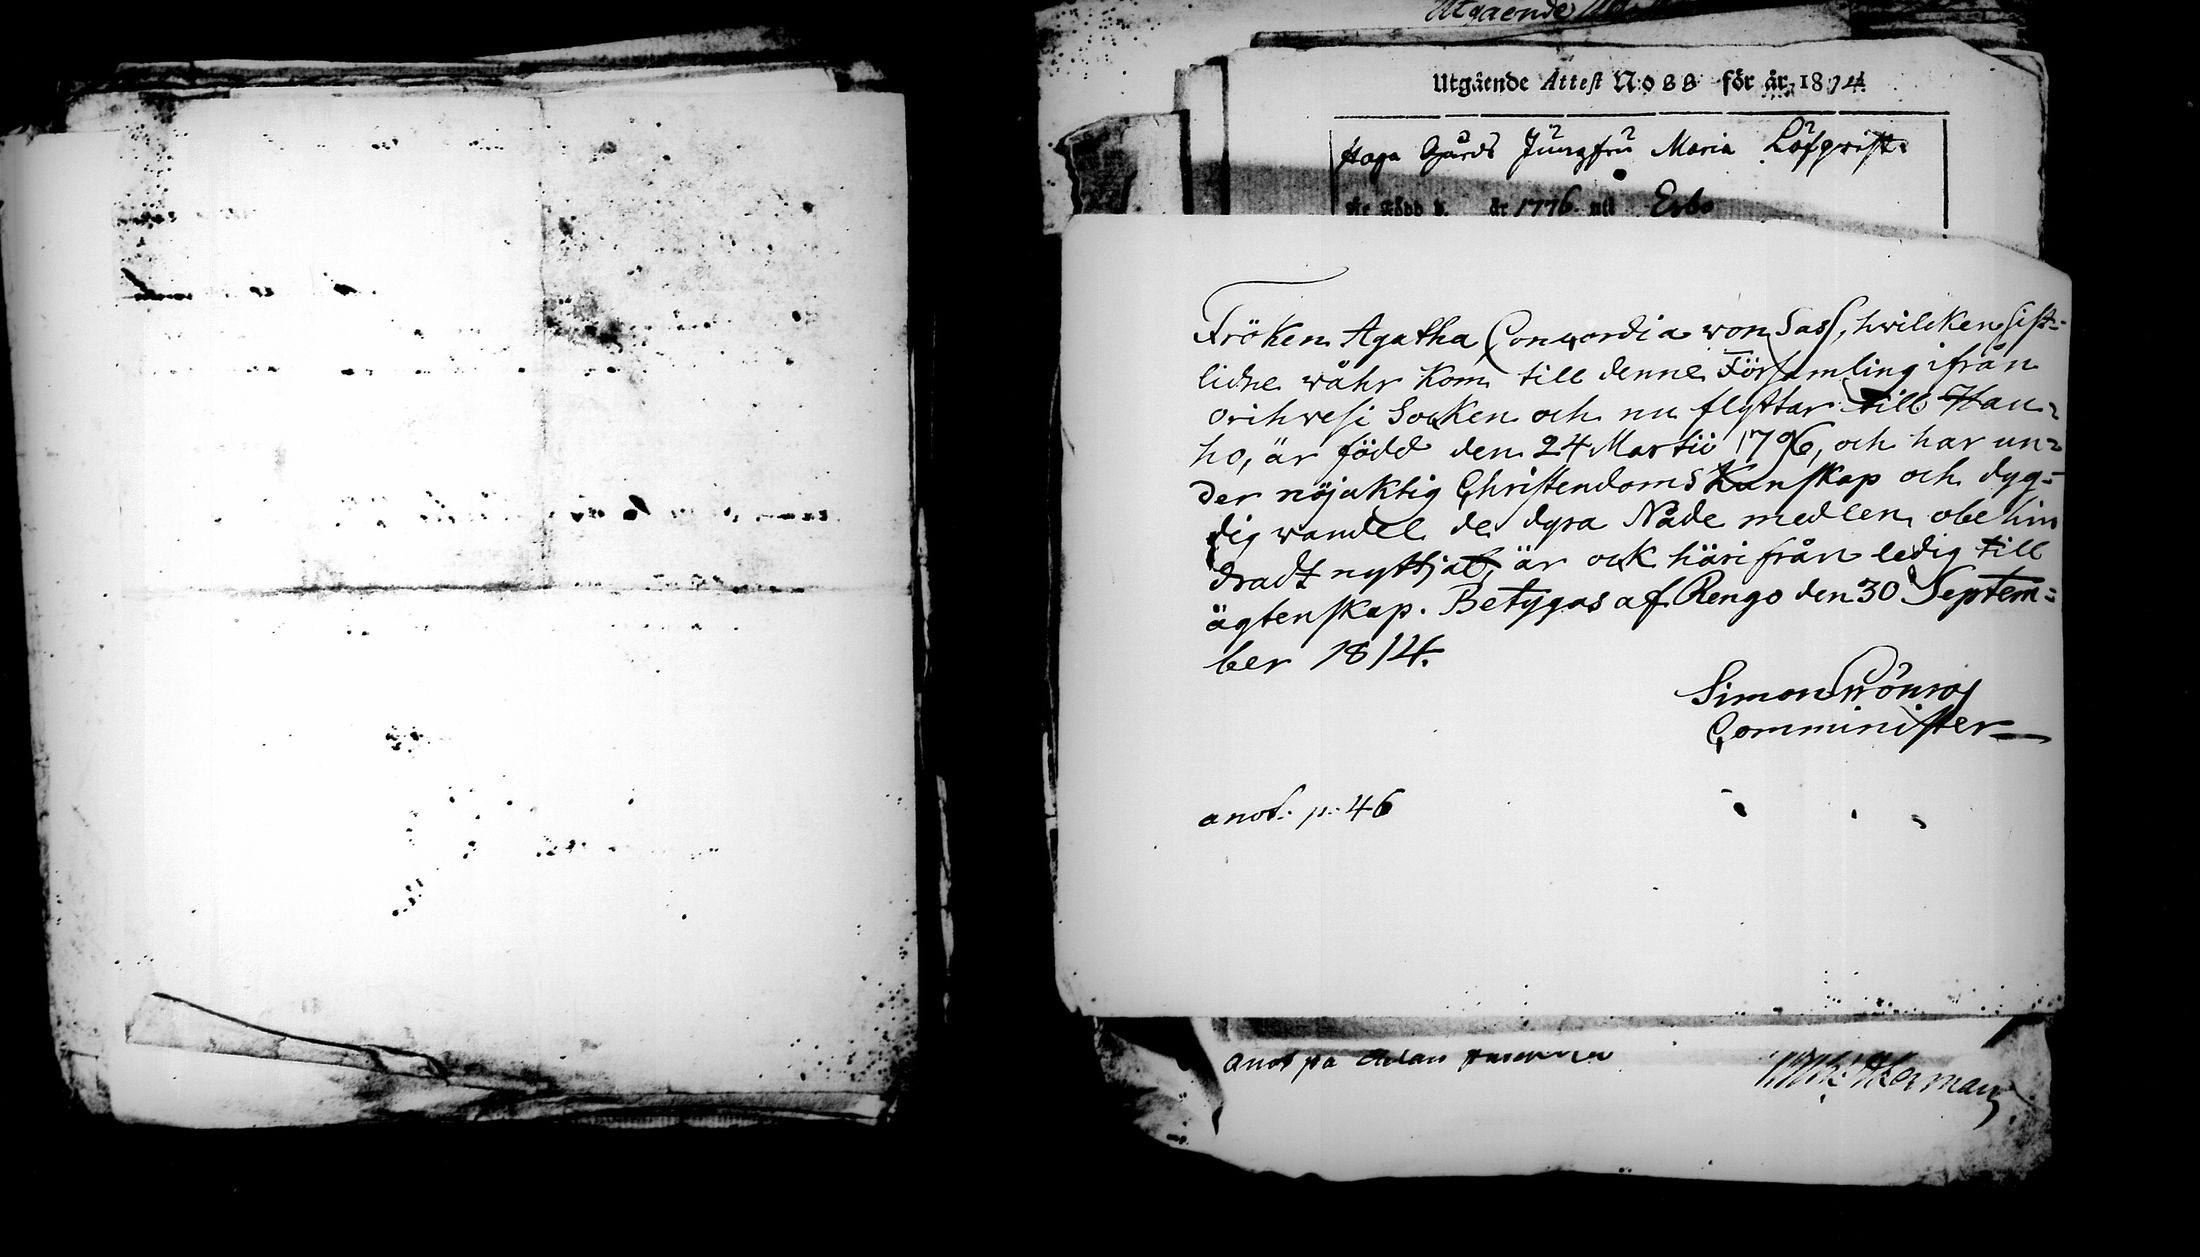 Utgående
Utgående Attest No 88 för år 1814.
Haga Gårds Jungfru Maria Löfqvist.
är född d. år 1776 uti Esbo
Fröken Agatha Concordia von Sass, hvilcken sist-
lidne wåhr kom till denne Församling ifrån
Orihvesi Socken och nu flyttar till Hau-
ho, är född den 24 Martii 1796, och har un-
der nöjaktig Christendoms Kunskap och dyg-
dig wandel de dyra Nåde medlen obehin
dradt nyttjat, är ock härifrån ledig till
ägtenskap. Betygas af Rengo den 30 Septem-
ber 1814.
Simon
Comminister
anot: p: 46
anot på